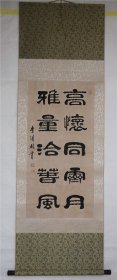 高懷同霽月
雅量洽春風